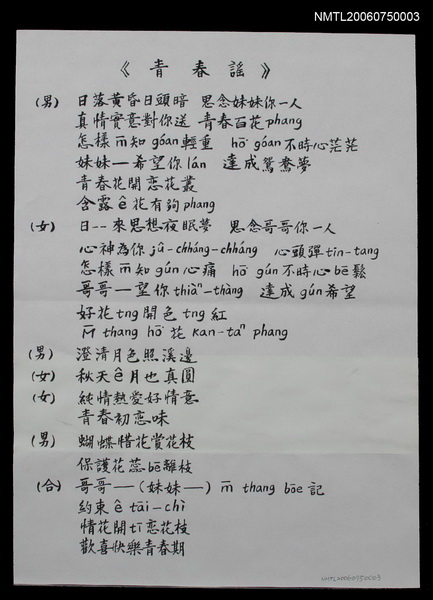 NMTL20060750003
《青春謠》
(男) 日落黃昏日頭暗 思念妹妹你一人
真情實意對你送 青春百花phang
怎樣m̄知góan輕重 hō͘ góan不時心茫茫
妹妹一希望你lán 達成鴛鴦夢
青春花開戀花叢
含露ê花有夠phang
(女) 日--來思想夜眠夢 思念哥哥你一人
心神為你jû-chháng-chháng 心頭彈tin-tang
怎樣m̄知gún心痛 hō͘ gún不時心bē鬆
哥哥一望你thiàⁿ-thàng 達成gún希望
好花tng開色tng紅
M̄ thang hō͘ 花 kan-taⁿ phang
(男) 澄清月色照溪邊
(女) 秋天ê月也真圓
(女) 純情熱愛好情意
青春初戀味
(男) 蝴蝶惜花賞花枝
保護花蕊bē離枝
(合) 哥哥一(妹妹一) m̄ thang bōe記
約束ê tāi-chì
情花開tī戀花枝
歡喜快樂青春期
NMTL20060750003